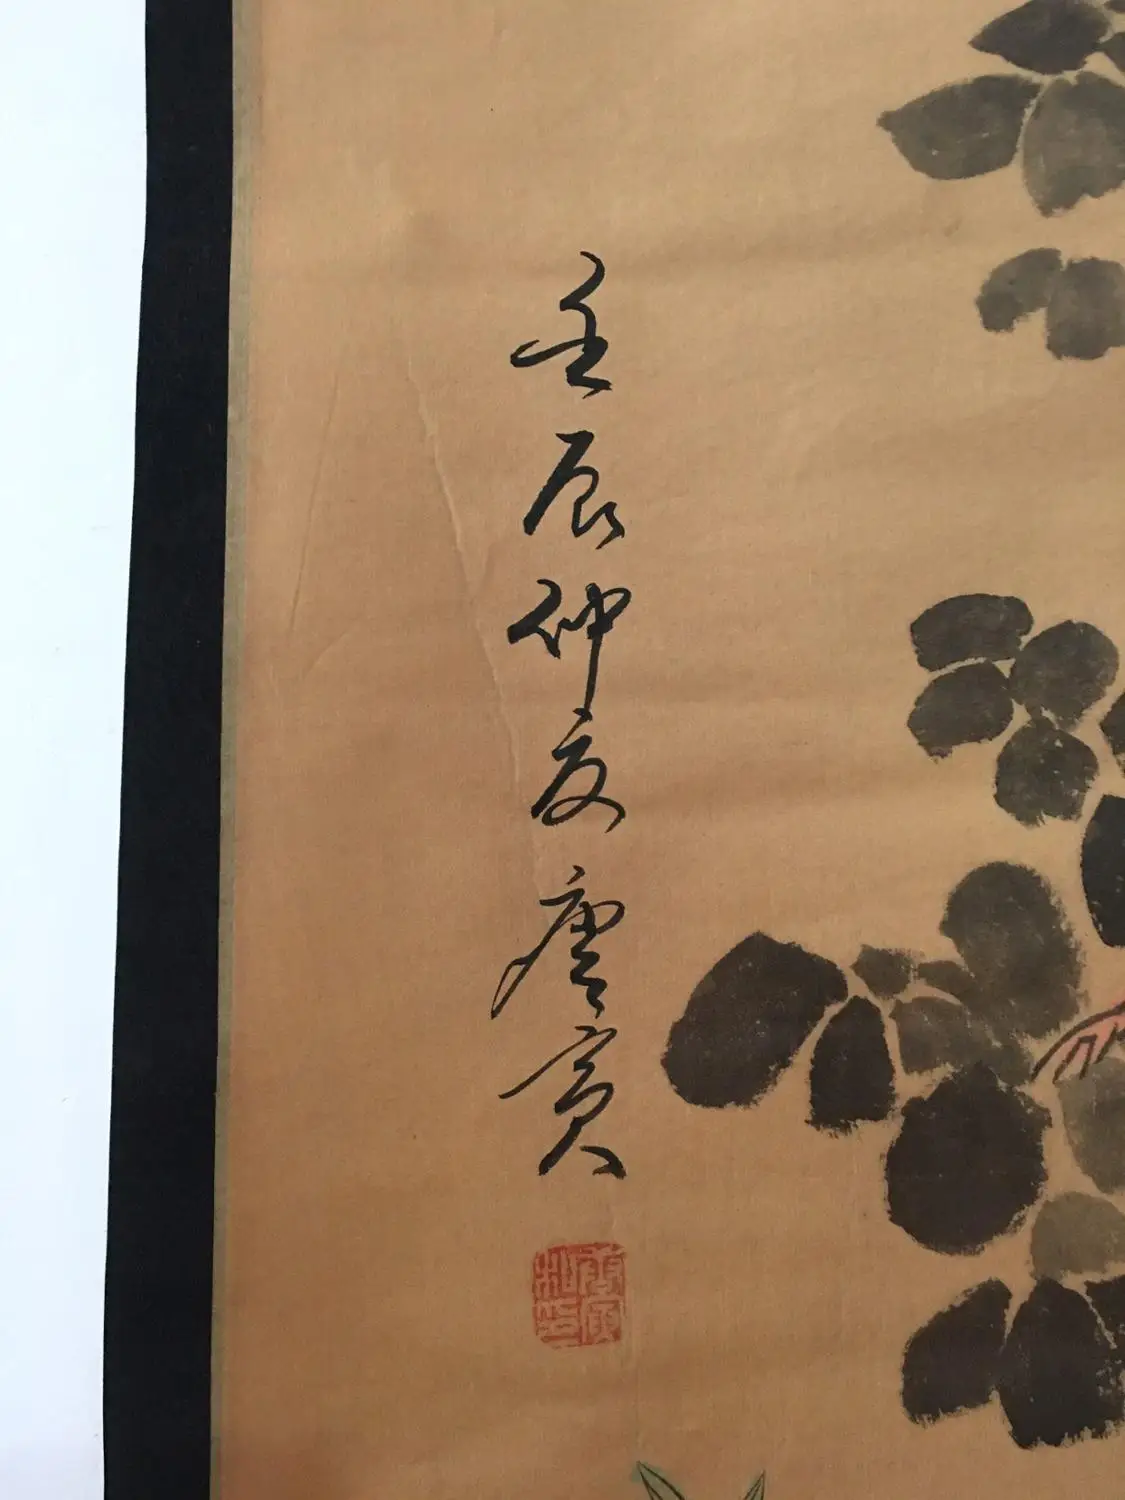 壬辰仲夏唐寅